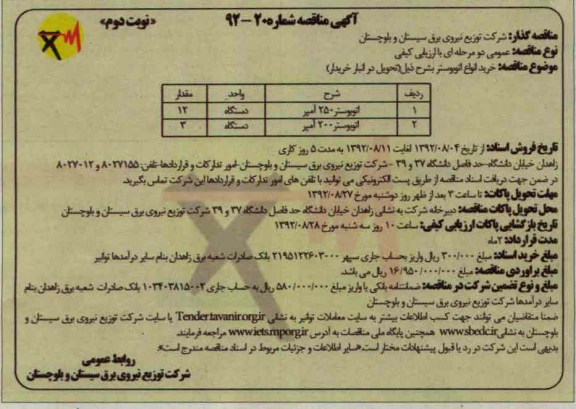 آگهی مناقصه شماره ۲۰ – ۹۲ «نوبت دوم»
مناقصه گذار: شرکت توزیع نیروی برق سیستان و بلوچستان
نوع مناقصه: عمومی دو مرحله ای با ارزیابی کیفی
موضوع مناقصه: خرید انواع اتوبوستر بشرح ذیل(تحویل در انبار خریدار)
ردیف شرح واحد مقدار
۱ اتوبوستر ۲۵۰ آمپر دستگاه ۱۲
۲ اتوبوستر ۲۰۰ آمپر دستگاه ۳
تاریخ فروش اسناد: از تاریخ ۱۳۹۲/۰۸/۰۴ لغایت ۱۳۹۲/۰۸/۱۱ به مدت ۵ روز کاری
زاهدان خیابان دانشگاه-حد فاصل دانشگاه ۳۷ و ۳۹ - شرکت توزیع نیروی برق سیستان و بلوچستان-امور تدارکات و قراردادها-تلفن: ۸۰۲۷۱۵۵ و ۸۰۲۷۰۱۲
در ضمن جهت دریافت اسناد مناقصه از طریق پست الکترونیکی می توانید با تلفن های امور تدارکات و قراردادها این شرکت تماس بگیرید.
مهلت تحویل پاکات: تا ساعت ۳ بعد از ظهر روز دوشنبه مورخ ۱۳۹۲/۰۸/۲۷
محل تحویل پاکات مناقصه: دبیرخانه شرکت به نشانی زاهدان خیابان دانشگاه حد فاصل دانشگاه ۳۷ و ۳۹ شرکت توزیع نیروی برق سیستان و بلوچستان
تاریخ بازگشایی پاکات ارزیابی کیفی: ساعت ۱۰ روز سه شنبه مورخ ۱۳۹۲/۰۸/۲۸
مدت قرارداد: ۲ماه
مبلغ خرید اسناد: مبلغ ۳۰۰/۰۰۰ ریال واریز بحساب جاری سپهر ۲۱۹۵۱۲۲۶۰۳۰۰۰ بانک صادرات شعبه برق زاهدان بنام سایر درآمدها توانیر
مبلغ براوردی مناقصه: مبلغ ۱۶/۹۵۰/۰۰۰/۰۰۰ ریال می باشد.
مبلغ و نوع تضمین شرکت در مناقصه: ضمانتنامه بانکی یا واریز مبلغ ۵۸۰/۰۰۰/۰۰۰ ریال به حساب جاری ۱۰۳۴۰۳۸۱۵۰۰۲ بانک صادرات شعبه برق زاهدان بنام
سایر درآمدها شرکت توزیع نیروی برق سیستان و بلوچستان
ضمنا متقاضیان می توانند جهت کسب اطلاعات بیشتر به سایت معاملات توانیر به نشانی Tender.tavanir.org.ir یا سایت شرکت توزیع نیروی برق سیستان و
بلوچستان به نشانی www.sbedc.ir همچنین پایگاه ملی مناقصات به آدرس www.iets.mporg.ir مراجعه فرمایند.
بدیهی است این شرکت در رد یا قبول پیشنهادات مختار است.«سایر اطلاعات و جزئیات مربوط در اسناد مناقصه مندرج است»
روابط عمومی
شرکت توزیع نیروی برق سیستان و بلوچستان